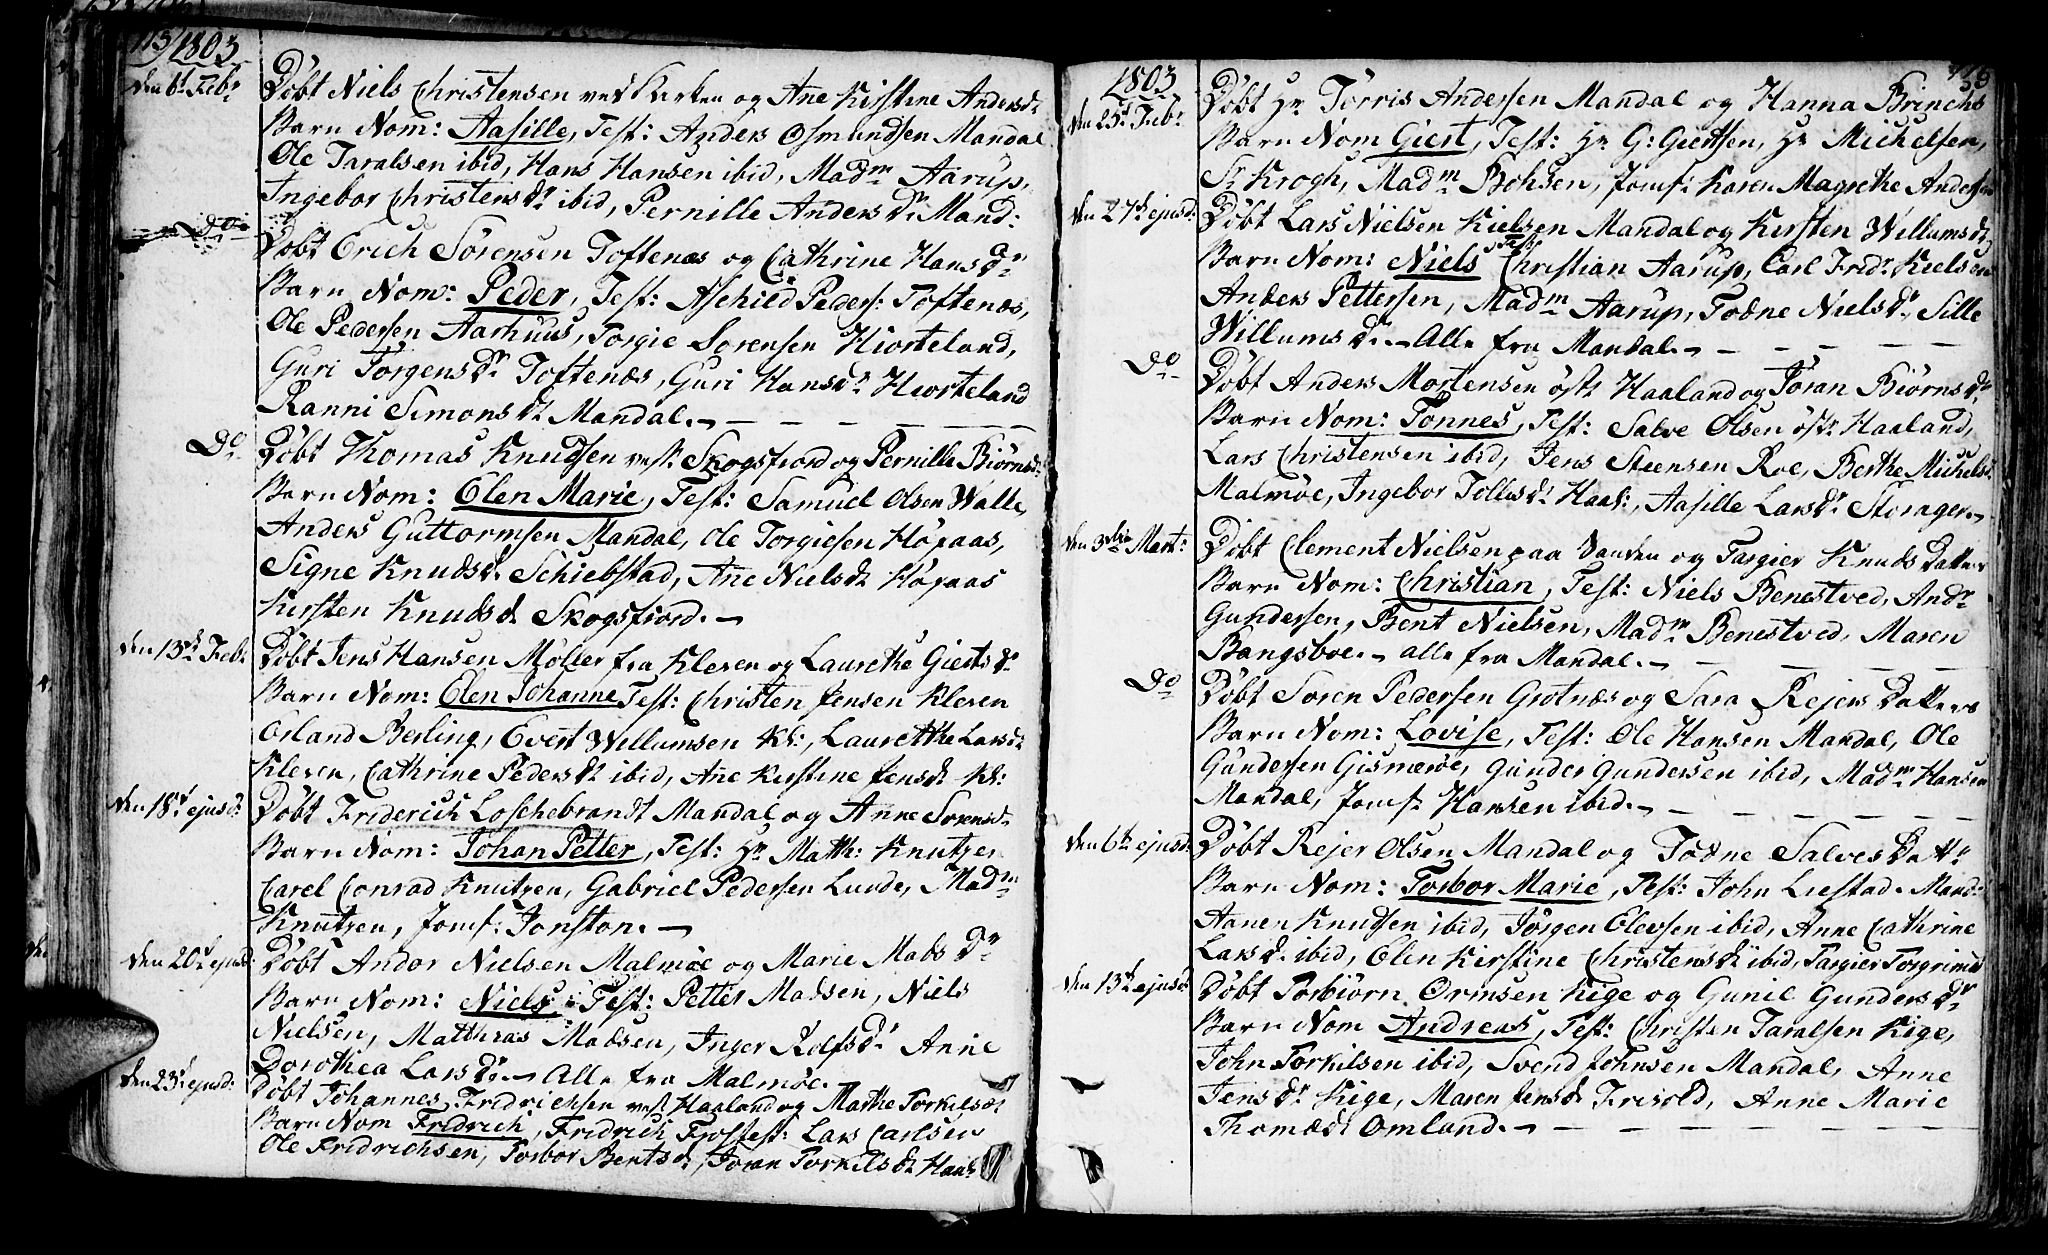 115 1803
den 6t Febr
Døbt Niels Christensen ved Kierken og Ane Kirstine Andersdr
Barn Nom: Aasille, Test: Anders Osmundsen Mandal
Ole Taralsen ibid, Hans Hansen ibid, Madm Aarup,
Ingebor Christensdr ibid, Pernille Andersdr Mand:
do
Døbt Erich Sørensen Toftenæs og Cathrine Hansdr
Barn Nom: Peder, Test: Aschild Peders: Toftenæs,
Ole Pedersen Aarhuus, Torgie Sørensen Hiorteland,
Guri Torgensdr Toftenæs, Guri Hansdr Hiorteland
Ranni Simonsdr Mandal.
Do
Døbt Thomas Knudsen vest. Skogsfiord og Pernille Biørnsd:
Barn Nom: Elen Marie, Test: Samuel Olsen Walle,
Anders Guttormsen Mandal, Ole Torgiesen Høfaas,
Signe Knudsd. Schiebstad, Ane Nielsdr Høfaas
Kirsten Knudsd Skogsfiord.
den 13de Feb:
Døbt Jens Hansen Møller fra Kleven og Laurethe Giertsdr
Barn Nom: Elen Johanne Test: Christen Jensen Kleven
Erland Berling, Evert Willumsen Kl:, Laurethe Larsdr
Kleven, Cathrine Pedersdr ibid, Ane Kirstine Jensdr Kl:
den 18t ejusd:
Døbt Friderich Loschebrandt Mandal og Anne Sørensdr
Barn Nom: Johan Petter, Test: Hr Matth: Knutzen
Carel Conrad Knutzen, Gabriel Pedersen Lunde, Madm
Knutzen, Jomf: Jonston.
den 20t ejusd
Døbt Andor Nielsen Malmøe og Marie Mads Dr
Barn Nom: Niels. Test: Petter Madsen, Niels
Nielsen, Matthias Madsen, Inger Rolfsdr Anne
Dorothea Larsdr. Alle fra Malmøe.
den 23t ejusd:
Døbt Johannes Fridrichsen vest Haaland og Marthe Torkilsdr
Barn Nom Fridrich, Fridrich Test: Lars Carlsen
Ole Fridrichsen, Torbor Bentsdr, Joran Torkilsdr Haal
1803
den 25t Febr
Døbt Hr Tørris Andersen Mandal og Hanna Brinchs
Barn Nom Giert, Test: Hr G: Giertsen, Hr Michelsen,
Sr Krogh, Madm Bohsen, Jomf: Karen Magrethe Andersen
den 27de ejusd:
Døbt Lars Nielsen Kielsen Mandal og Kirsten Willumsdr
Barn Nom: Niels Test: Christian Aarup, Carl Fridr Kielsen
Anders Pettersen, Madm Aarup, Todne Nielsdr, Sille
Willums d. Alle fra Mandal.
Do
Døbt Anders Mortensen østr Haaland og Joran Biørnsdr
Barn Nom: Tønnes, Test: Salve Olsen østr Haaland,
Lars Christensen ibid, Jens Steensen Roe, Berthe Michelsd:
Malmøe, Ingebor Tollisdr Haal:, Aasille Larsdr Storager.
den 3die Mart:
Døbt Clement Nielsen paa Sanden og Targier Knuds Datter
Barn Nom: Christian, Test: Niels Benestved, Andr
Gundersen, Bent Nielsen, Madm Benestved, Maren
Bangsboe. alle fra Mandal.
Do
Døbt Søren Pedersen Grotnæs og Sara Rejers Datter
Barn Nom: Lovise, Test: Ole Hansen Mandal, Ole
Gundersen Gismerøe, Gunder Gundersen ibid, Madm Hansen
Mandal, Jomf: Hansen ibid.
den 6te ejusd:
Døbt Rejer Olsen Mandal og Todne Salves Dattr
Barn Nom: Torbor Marie, Test: John Liestad Mand:
Aanen Knudsen ibid, Jørgen Olevsen ibid, Anne Cathrine
Larsdr ibid, Elen Kirstine Christensdr ibid, Targier Torgrimsd
den 13de ejusd:
Døbt Torbiørn Ormsen Kige og Gunil Gundersdr
Barn Nom Andreas, Test: Christen Taralsen Kige,
John Torkilsen ibid, Svend Johnsen Mandal, Anne
Jensdr Kige, Maren Jensdr Frivold, Anne Marie
Thomædr Omland.